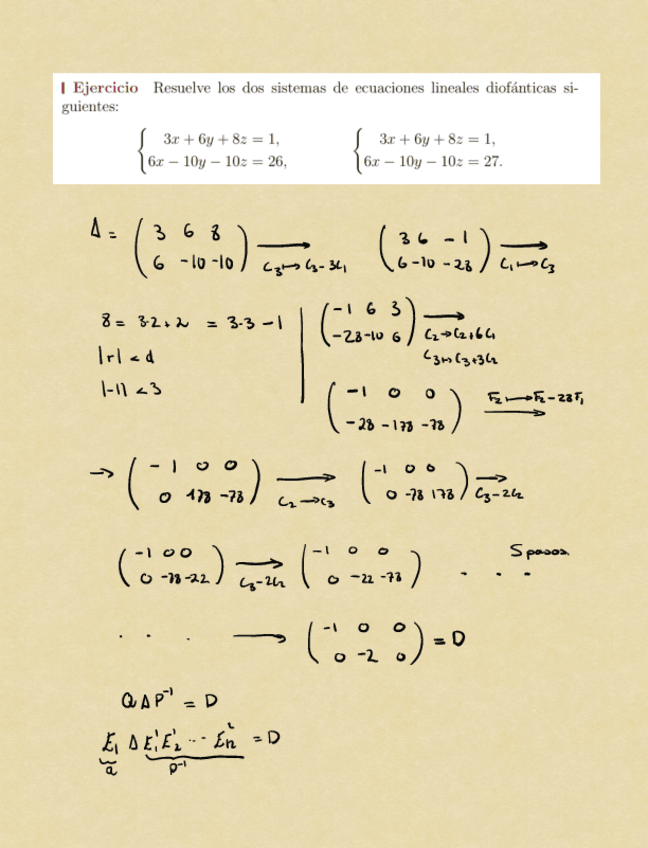 Ejercicio Resuelve los dos sistemas de ecuaciones lineales diofánticas si-
guientes:
3x + 6y + 8z = 1,
6x − 10y − 10z = 26,
3x + 6y + 8z = 1,
6x − 10y − 10z = 27.
A = ( 3 6 8 ; 6 -10 -10 ) → C3↦C3-3C1 ( 3 6 -1 ; 6 -10 -28 ) → C1↦C3
8 = 3·2+2 = 3·3-1
|r| < d
|-1| < 3
( -1 6 3 ; -28 -10 6 ) → C2→C2+6C1
C3↦C3+3C2
( -1 0 0 ; -28 -178 -78 ) F2↦F2-28F1
→ ( -1 0 0 ; 0 178 -78 ) → C2→C3 ( -1 0 0 ; 0 -78 178 ) → C3-2C2
( -1 0 0 ; 0 -78 -22 ) → C3-2C2 ( -1 0 0 ; 0 -22 -78 ) . . . 5 pasos.
. . . → ( -1 0 0 ; 0 -2 0 ) = D
QAP⁻¹ = D
E1 A E1' E2' ... En' = D
Q P⁻¹